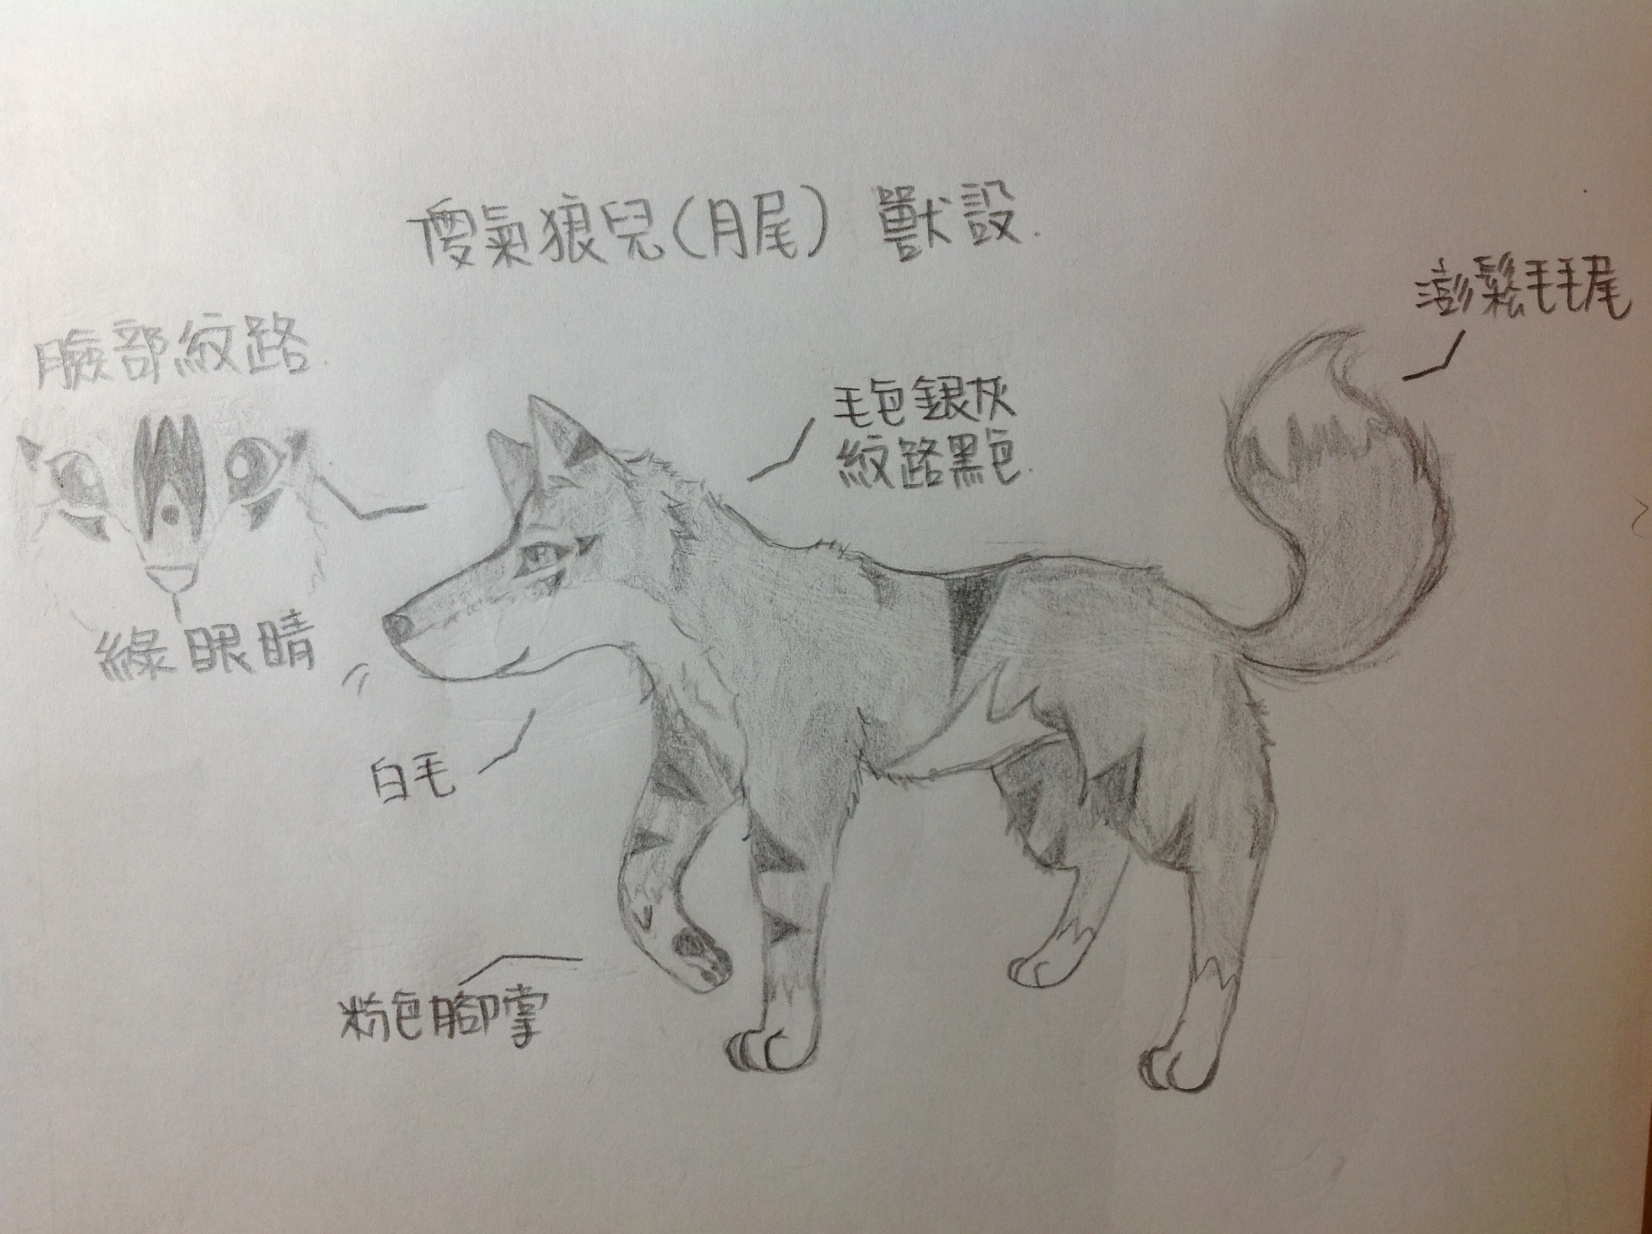 傻氣狼兒(月尾) 獸設.
澎鬆毛毛尾
臉部紋路.
毛色銀灰
紋路黑色.
綠眼睛
白毛
粉色腳掌